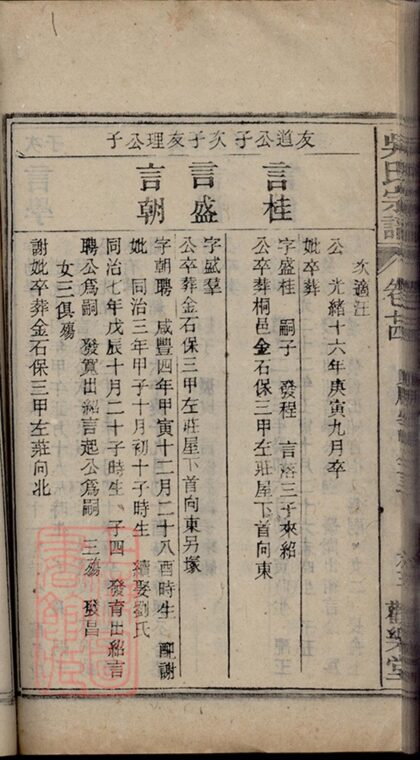 吳氏宗譜
卷十四
觀樂堂
次適汪
公 光緒十六年庚寅九月卒
妣卒葬
友道公子
言桂
字盛桂 嗣子 發程 言落三子來紹
公卒葬桐邑金石保三甲左莊屋下首向東
次子
言盛
字盛羣
公卒葬金石保三甲左莊屋下首向東另塚
友理公子
言朝
字朝聘 咸豐四年甲寅十二月二十八酉時生 配謝
妣 同治三年甲子十月初十子時生 續娶劉氏
同治七年戊辰十月二十子時生 子四 發育出紹言
聘公爲嗣 發賀出紹言起公爲嗣 三殤 發昌
女三俱殤
謝妣卒葬金石保三甲左莊向北